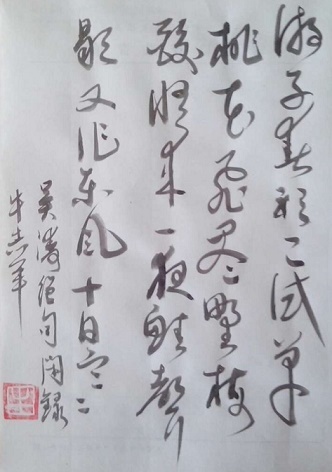 游子春衫已试单
桃花飞尽野梅
酸怪来一夜蛙声
歇又作东风十日寒
吴涛绝句闲录
牛